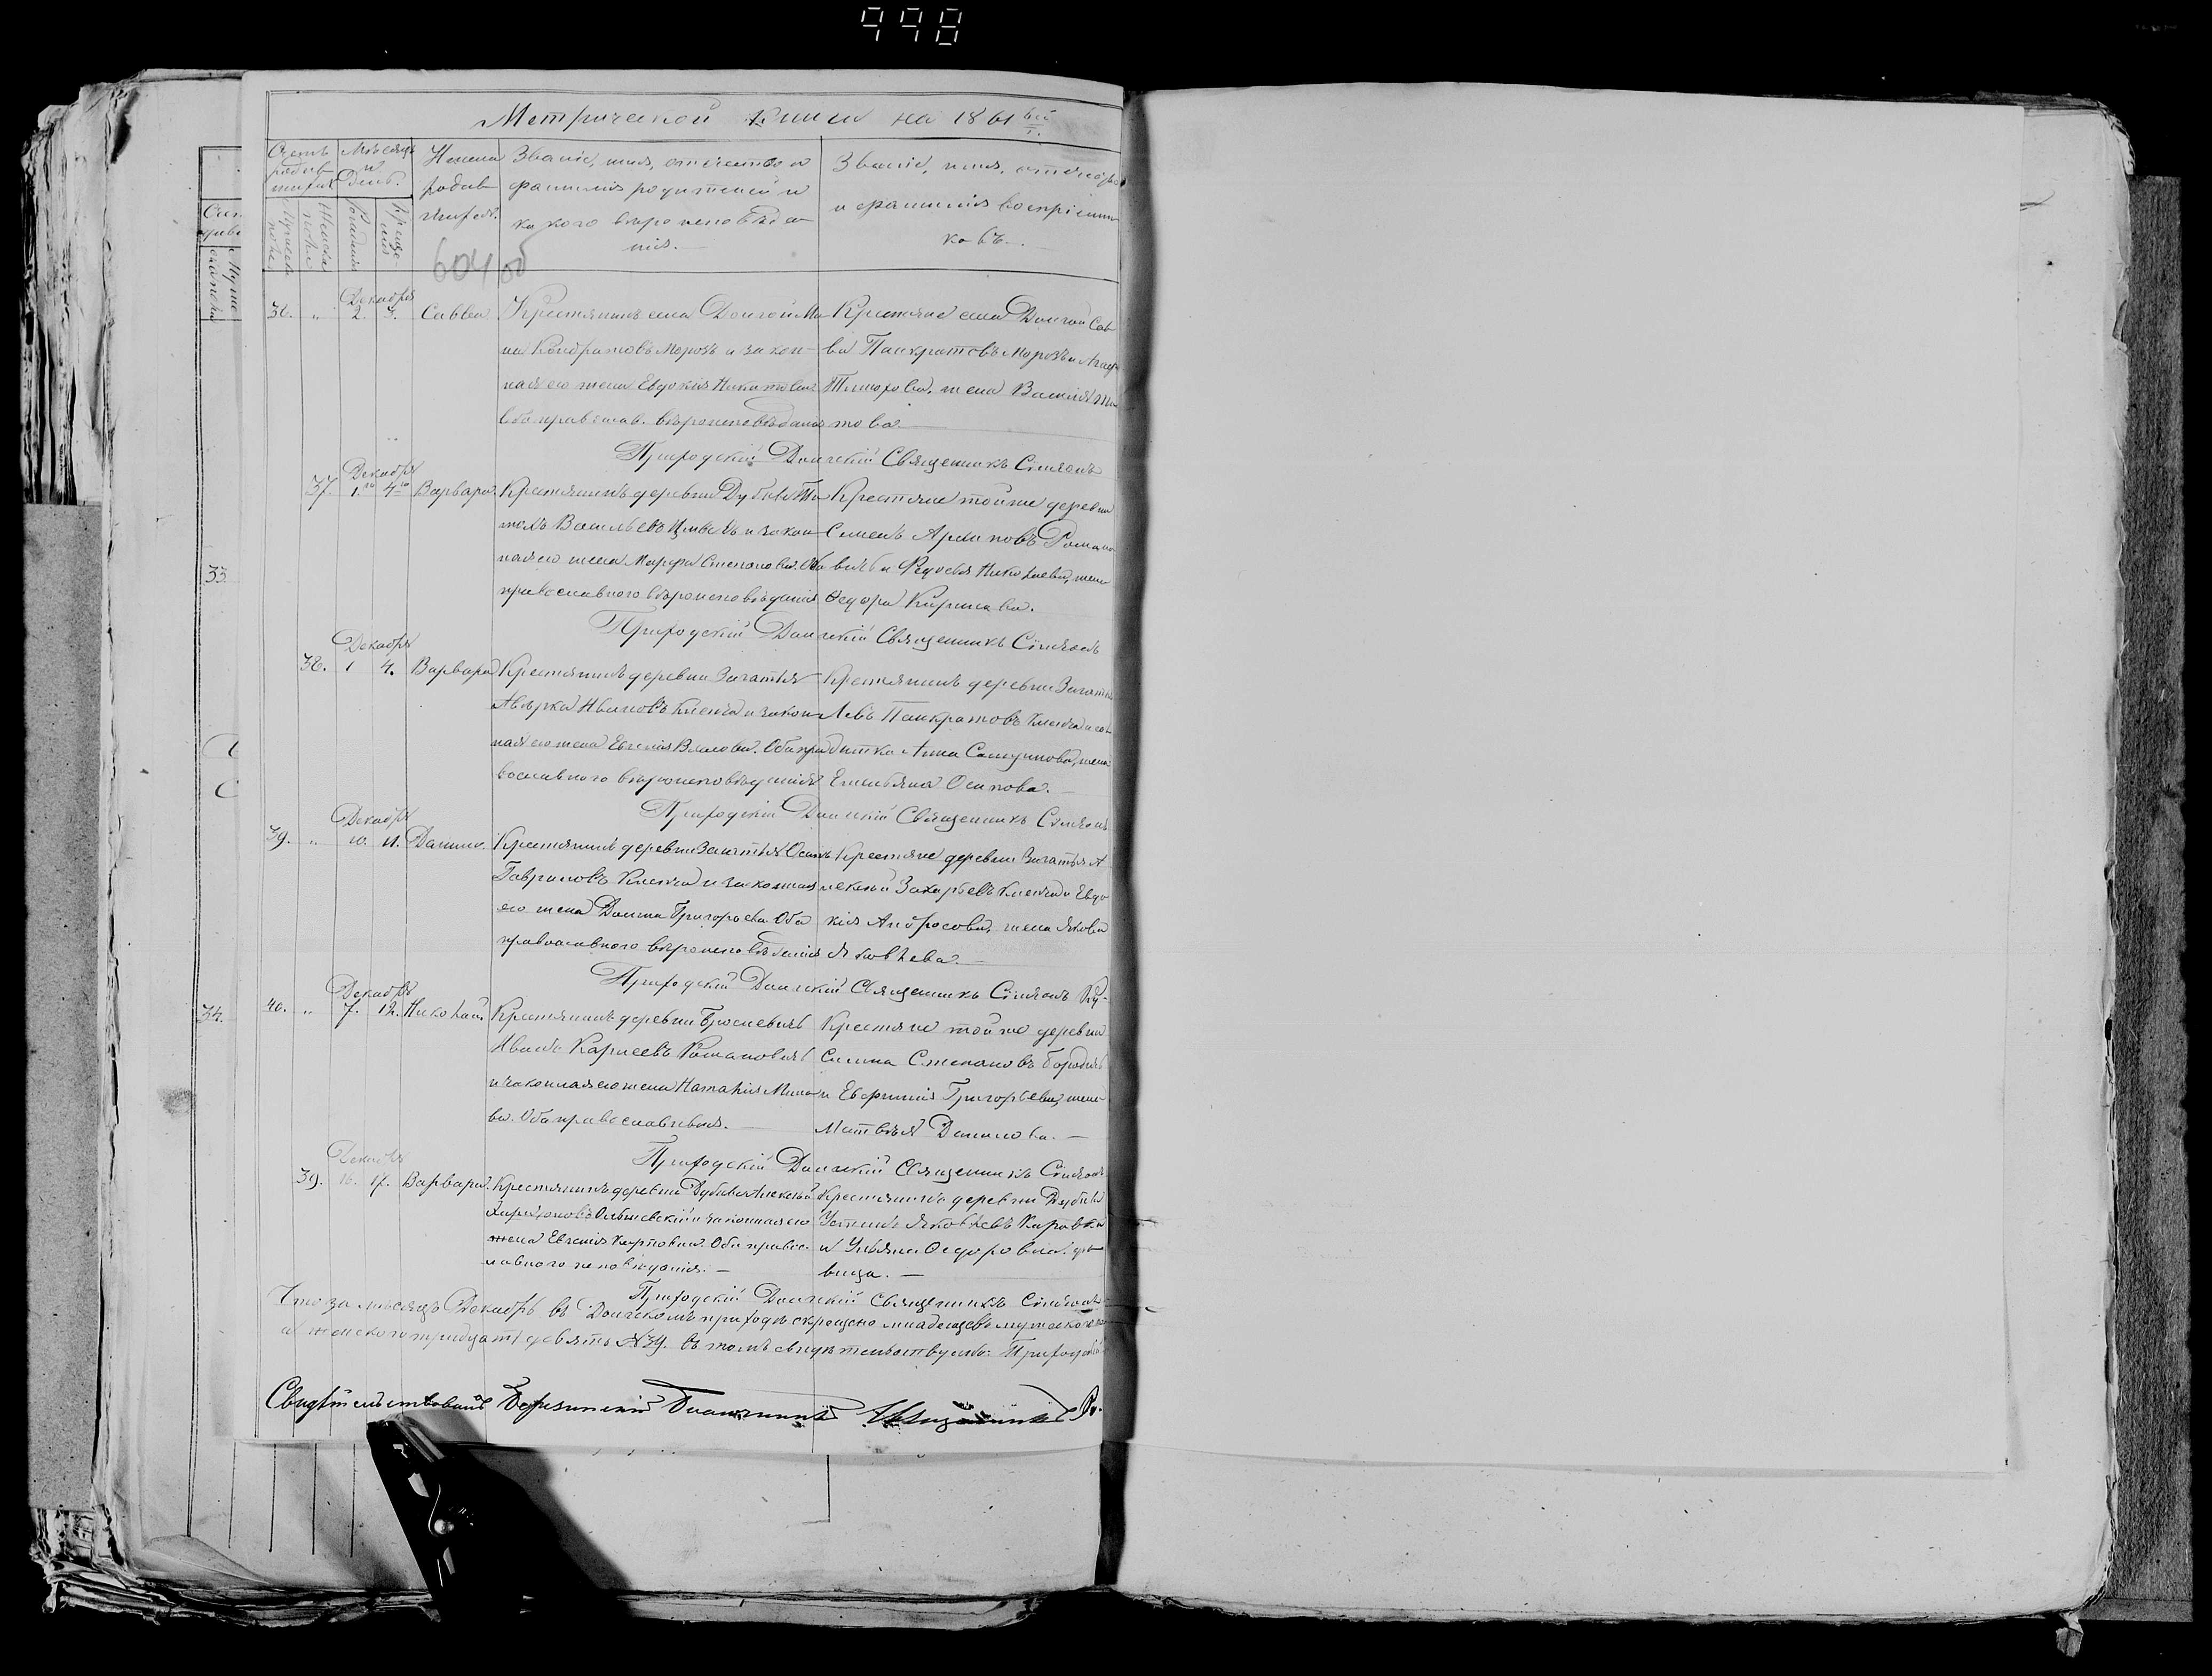 998
Метрической книги на 1861ый г.
Счетъ родившихся
Мѣсяцъ и День.
Имена родившихся.
Званіе, имя, отечество и фамилія родителей и какого вѣроисповѣданія.
Званіе, имя, отечество и фамилія воспріемниковъ.
Мужеска пола
Женска пола
Рожденія
Крещенія
604 об
Декабря
38. " 2. 3. Савва. Крестьянинъ села Долгой Ми-
на Кондратовъ Морозъ и закон-
ная его жена Евдокія Никитова
оба православ. вѣроисповѣданія
Крестьяне села Долгой Сав-
ва Панкратовъ Морозъ и Агаф
Тимохова, жена Василія Ти-
това.
Приходскій Долгскій Священникъ Симеонъ
Декабря
37. 1го 4го Варвара. Крестьянинъ деревни Дубива Ти-
тъ Васильевъ и закон-
ная его жена Марфа Степанова. Оба
православного вѣроисповѣданія
Крестьяне той же деревни
Семенъ Архиповъ Романо-
вичъ и Федосья Николаева, жена
Федора Кирилова.
Приходскій Долгскій Священникъ Симеонъ
Декабря
38. 1 4. Варвара Крестьянинъ деревни Загатья
Аверка Ивановъ Кленча и закон
ная его жена Евгенія Власова. Оба пра
вославного вѣроисповѣданія
Крестьянинъ деревни Загатья
Левъ Панкратовъ Кленча и сол-
датка Анна жена
Емельяна Осипова.
Приходскій Долгскій Священникъ Симеонъ
Декабря
39. " 10. 11. Данило. Крестьянинъ деревни Загатья Осипъ
Гавриловъ Кленча и законная
его жена Домна Григорьева. Оба
православного вѣроисповѣданія
Крестьяне деревни Загатья А-
лексѣй Захарьевъ Кленча и Евдо
кія Амбросова, жена Якова
Яковлева.
Приходскій Долгскій Священникъ Симеонъ
Декабря
40. " 7. 12. Николай. Крестьянинъ деревни Броневичъ
Иванъ Карнеевъ Романовичъ
и законная его жена Наталія Мино-
ва. Оба православныя.
Крестьяне той же деревни
Силина Степановъ Бородичъ
и Евфимія Григорьева, жена
Матвѣя Данилова.
Приходскій Долгскій Священникъ Симеонъ
Декабря
39. 16. 17. Варвара. Крестьянинъ деревни Дубива Алексѣй
Харитоновъ Ольшевскій и законная его
жена Евгенія Карповна. Оба правос-
лавного исповѣданія.
Крестьянинъ деревни Дубива
Устинъ Яковлевъ
и Ульяна Федоровна дѣ-
вица.
Приходскій Долгскій Священникъ Симеонъ
Что за мѣсяцъ Декабрь въ Долгскомъ приходѣ окрещено младенцевъ мужеского
а женского тридцать девять №39. въ томъ свидѣтельствую: Приходскій
Свидѣтельствовалъ Березинскій Благочинный Священникъ
33
34.